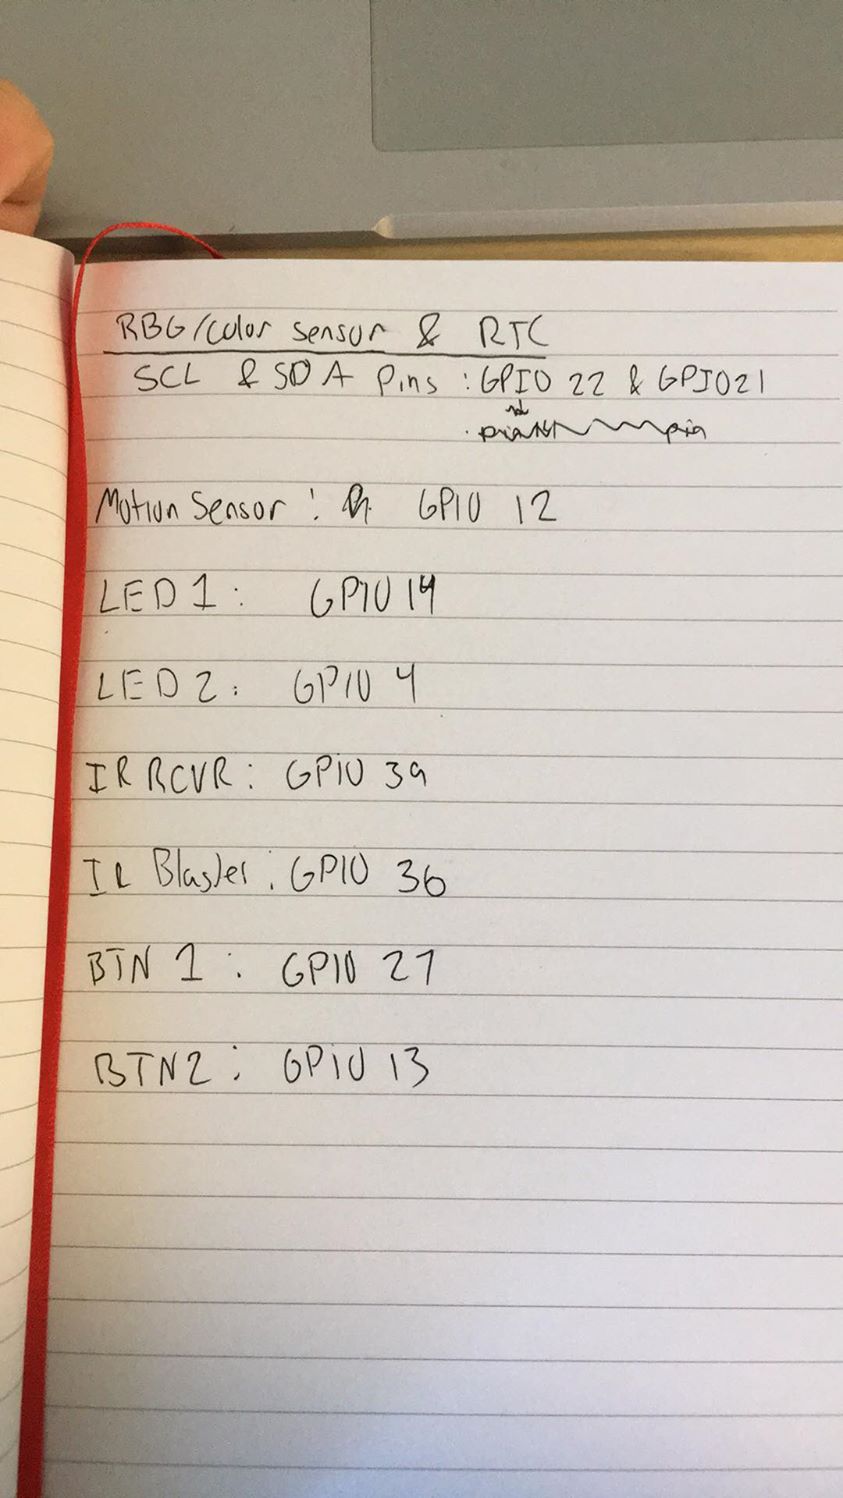 RBG/Color Sensor & RTC
SCL & SDA Pins : GPIO 22 & GPIO21
Motion Sensor : GPIO 12
LED 1 : GPIO 14
LED 2 : GPIO 4
IR RCVR : GPIO 39
IR Blaster : GPIO 36
BTN 1 : GPIO 27
BTN2 : GPIO 13